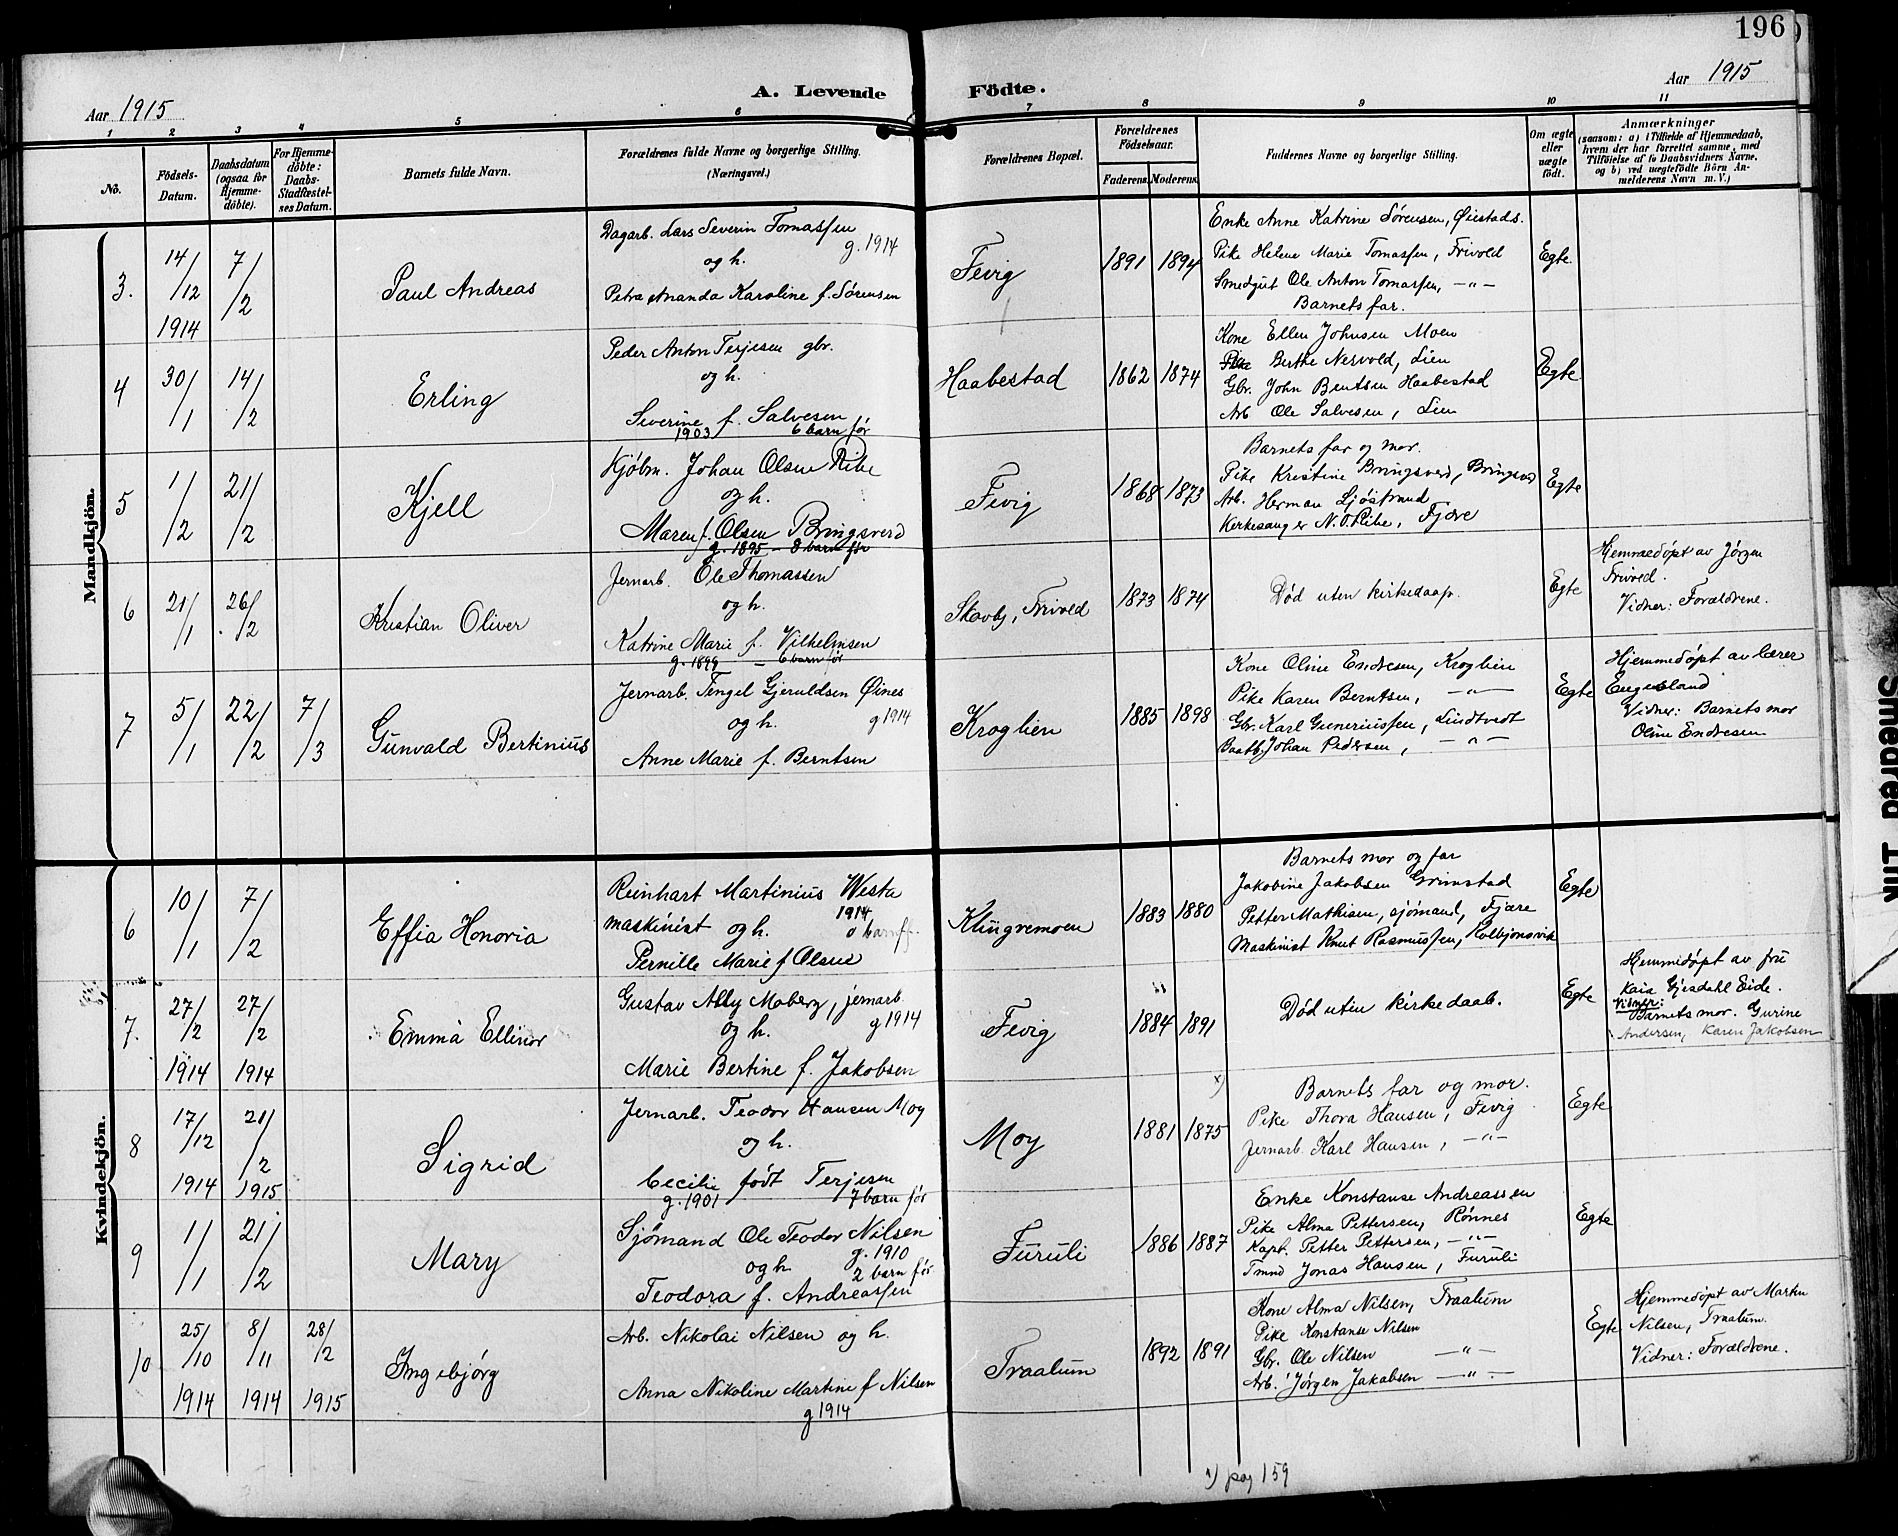 196
Aar 1915
A. Levende Födte.
Aar 1915
1 2 3 4 5 6 7 8 9 10 11
No.
Födsels-
Datum.
Daabsdatum
(ogsaa for
Hjemme-
döbte).
For Hjemme-
döbte:
Daabs-
Stadfæstel-
ses Datum.
Barnets fulde Navn.
Forældrenes fulde Navne og borgerlige Stilling.
(Næringsvei.)
Forældrenes Bopæl.
Forældrenes
Födselsaar.
Faderens. Moderens.
Faddernes Navne og borgerlige Stilling.
Om ægte
eller
uægte
födt.
Anmærkninger
(saasom: a) i Tilfælde af Hjemmedaab,
hvem der har forrettet samme, med
Tilföielse af to Daabsvidners Navne,
og b) ved uægtefödte Börn An-
melderens Navn m. V.)
Mandkjön.
3.
14/12
1914
7/2
Paul Andreas
Dagarb. Lars Severin Tomassen
g. 1914
og h.
Petra Ananda Karoline f. Sørensen
Fevig
1891 1894
Enke Anne Katrine Sørensen, Øiestads.
Pike Helene Marie Tomassen, Frivold
Smedgut Ole Anton Tomassen, -"-
Barnets far.
Egte
4
30/1
14/2
Erling
Peder Anton Terjesen gbr.
og h.
Severine f. Salvesen
1903 6 barn før
Haabestad
1862 1874
Kone Ellen Johnsen Moen
Pike Berthe Nesvold, Lien
Gbr. John Bentsen Haabestad
Arb Ole Salvesen, Lien
Egte
5
1/2
21/2
Kjell
Kjøbm. Johan Olsen Ribe
og h.
Maren f. Olsen Bringsverd
g. 1895 - 8 barn før
Fevig
1868 1873
Barnets far og mor.
Pike Kristine Bringsverd, Bringsverd
Arb. Herman Sjöstrand
Kirkesanger N.O. Ribe, Fjære
Egte
6
21/1
26/2
Kristian Oliver
Jernarb. Ole Thomassen
og h.
Katrine Marie f. Vilhelmsen
g. 1899 - 6 barn før
Skovby, Frivold
1873 1874
Død uten kirkedaap.
Egte
Hjemmedøpt av Jørgen
Frivold.
Vidner: Forældrene.
7
5/1
22/2
7/3
Gunvald Bertinius
Jernarb. Tengel Gjeruldsen Øines
og h. g 1914
Anne Marie f. Berntsen
Kroglien
1885 1898
Kone Oline Endresen, Kroglien
Pike Karen Berntsen, -"-
Gbr. Karl Guneriussen, Lindtvedt
Baatb. Johan Pedersen, -"-
Egte
Hjemmedøpt av lærer
Eugeland
Vidner: Barnets mor
Oline Endresen
Kvindekjön.
6
10/1
7/2
Effia Honoria
Reinhart Martinius Westa
1914
maskinist og h. 0 barn f.
Pernille Marie f Olsen
Klingremoen
1883 1880
Barnets mor og far
Jakobine Jakobsen Grimstad
Petter Mathisen, sjömand, Fjære
Maskinist Knut Rasmussen, Kolbjønsvik
Egte
7.
27/2
1914
27/2
1914
Emma Ellinor
Gustav Ally Moberg, jernarb.
og h. g 1914
Marie Bertine f. Jakobsen
Fevig
1884 1891
Død uten kirkedaab.
Egte
Hjemmedøpt av fru
Kaia Gjesdahl Eide.
Vidner:
Barnets mor. Gurine
Andersen, Karen Jakobsen
8
17/12
1914
21/2
1915
Sigrid
Jernarb. Teodor Hansen Moy
og h.
Cecilie født Terjesen
g. 1901 7 barn før
Moy
1881 1875
x)
Barnets far og mor.
Pike Thora Hansen, Fevig
Jernarb. Karl Hansen, -"-
Egte
9
1/1
21/2
Mary
Sjømand Ole Teodor Nilsen
g. 1910
og h. 2 barn før
Teodora f. Andreassen
Furuli
1886 1887
Enke Konstanse Andreassen
Pike Alma Pettersen, Rønnes
Kapt. Petter Pettersen, -"-
Tmnd Jonas Hansen, Furuli
Egte
10
25/10
1914
8/11
1914
28/2
1915
Ingebjørg
Arb. Nikolai Nilsen og h.
Anna Nikoline Martine f Nilsen
g 1914
Traalum
1892 1891
Kone Alma Nilsen, Traalum
Pike Konstanse Nilsen
Gbr. Ole Nilsen -"-
Arb. Jørgen Jakobsen -"-
Egte
Hjemmedøpt av Martin
Nilsen, Traalum.
Vidner: Forældrene.
x) pag 159